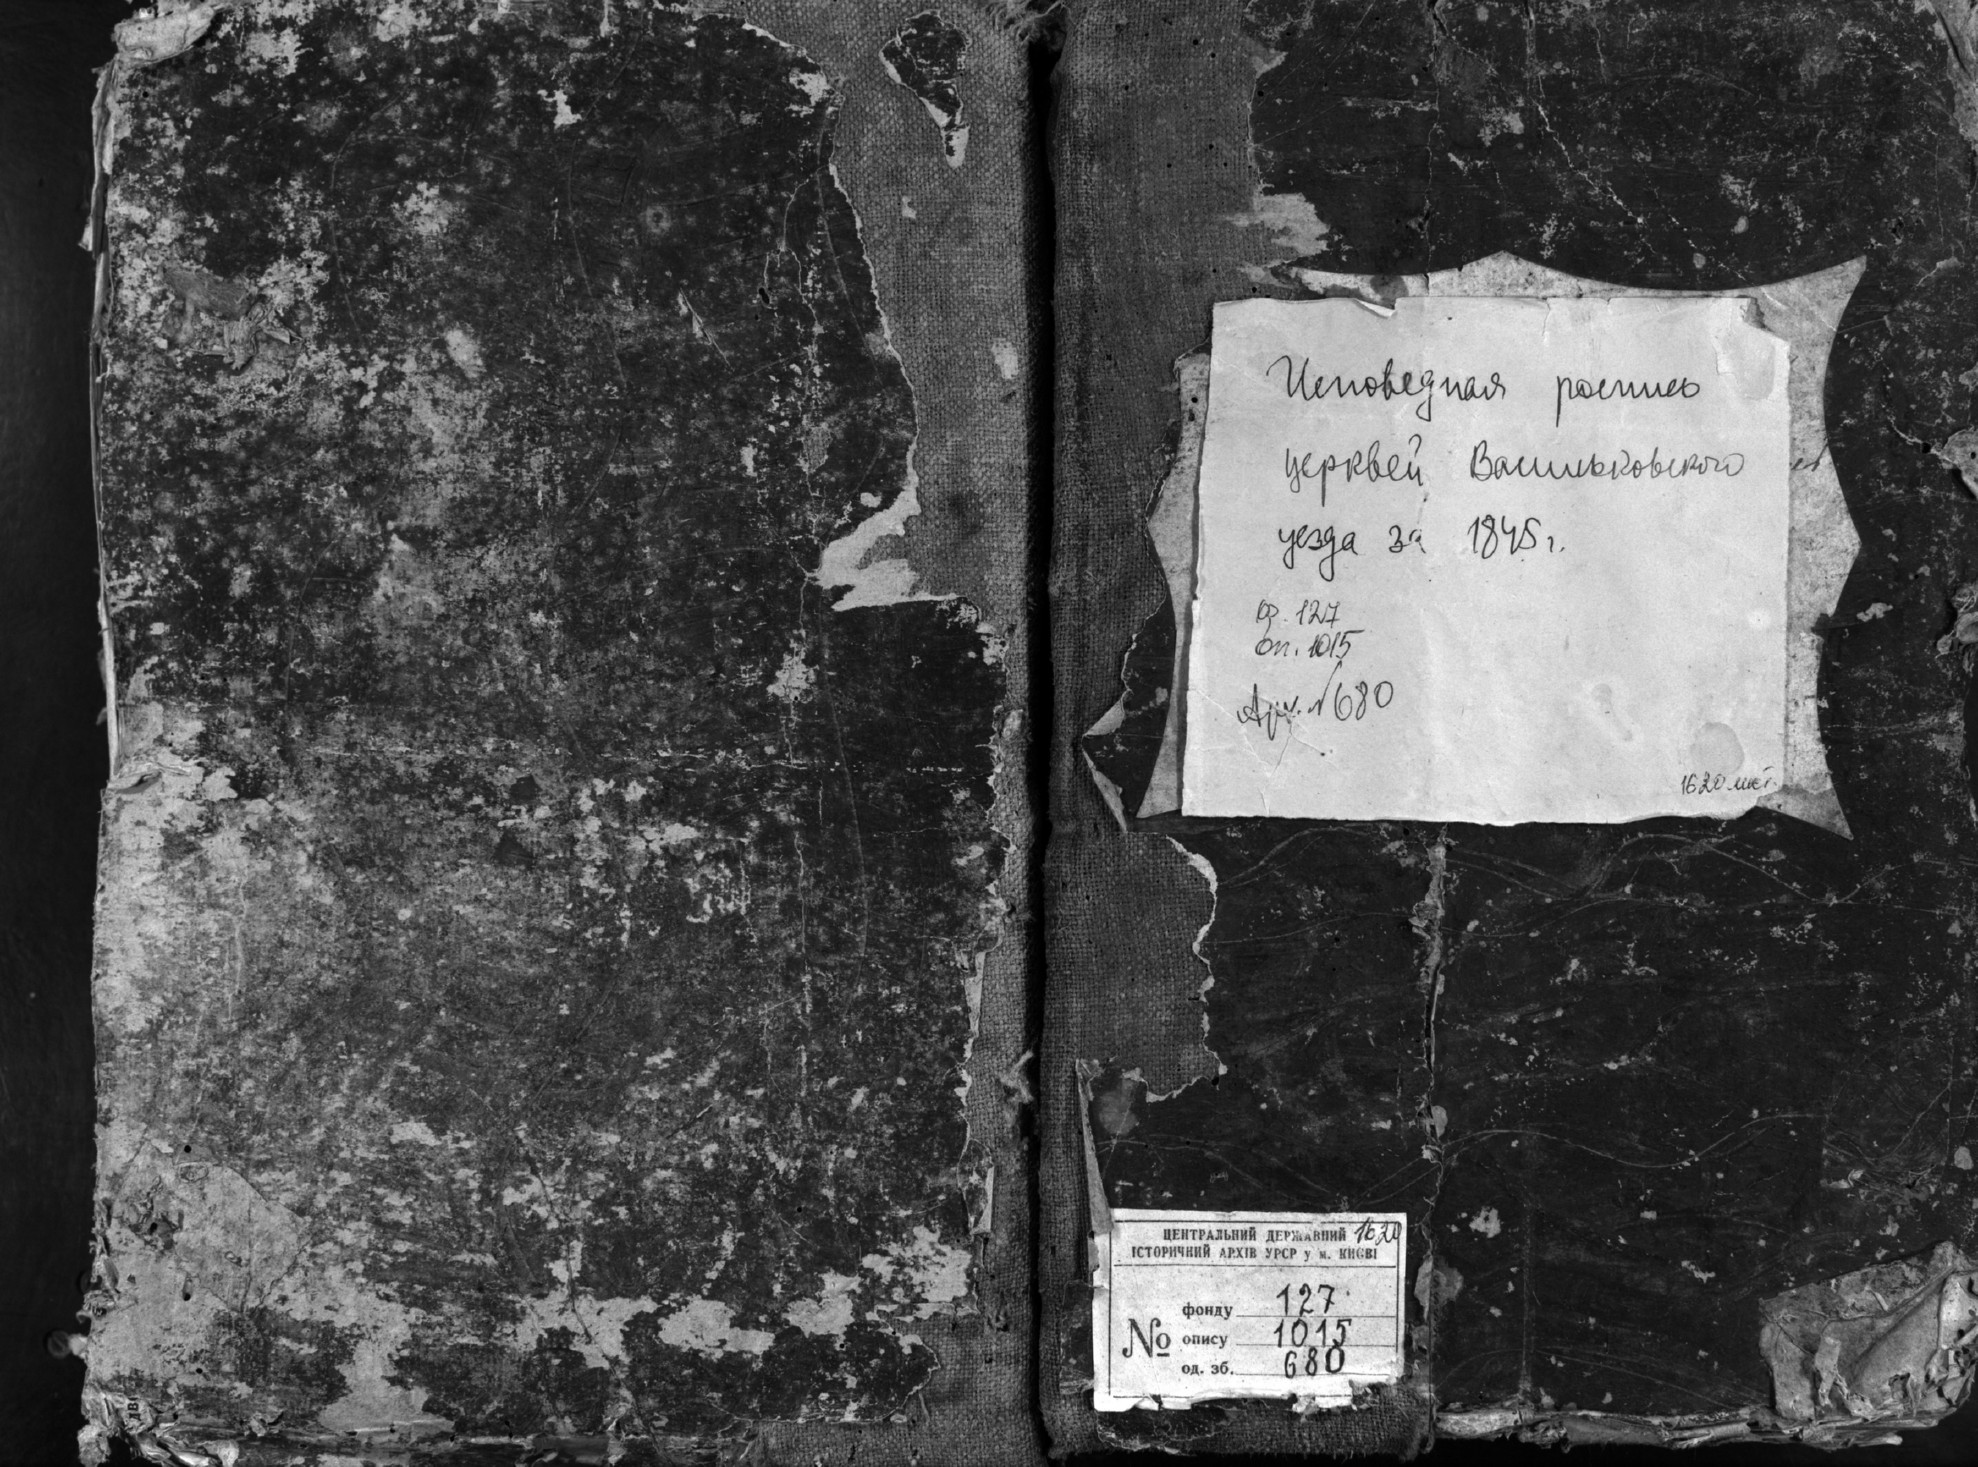 Исповедная роспись
церквей Васильковского
уезда за 1845 г.
ф. 127
оп. 1015
Арх. № 680
1620 лист.
ЦЕНТРАЛЬНИЙ ДЕРЖАВНИЙ 1620
ІСТОРИЧНИЙ АРХІВ УРСР у м. КИЄВІ
фонду 127
№ опису 1015
од. зб. 680